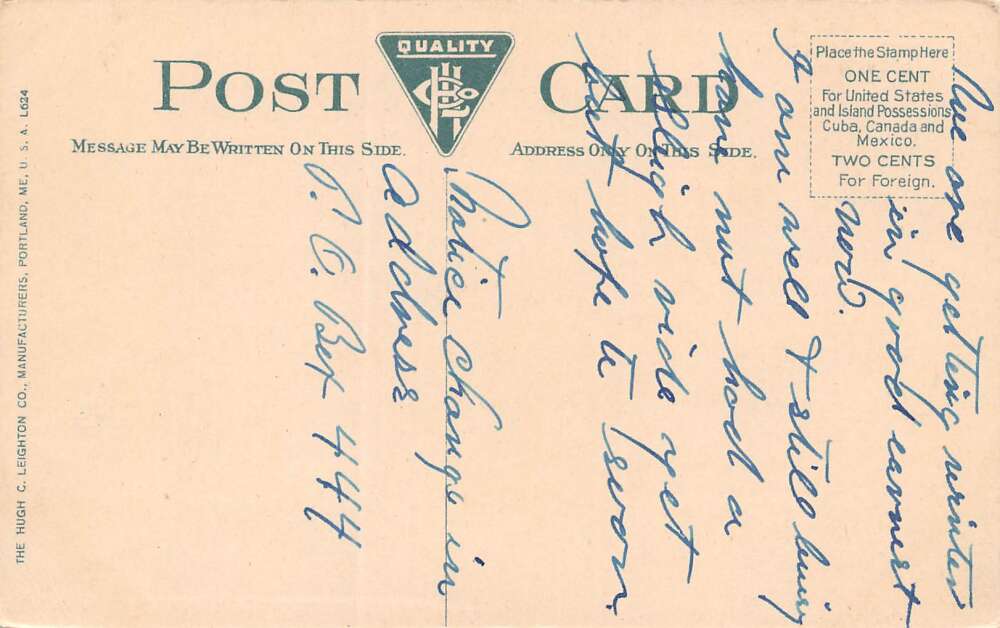 QUALITY
POST CARD
MESSAGE MAY BE WRITTEN ON THIS SIDE.
ADDRESS ONLY ON THIS SIDE.
Place the Stamp Here
ONE CENT
For United States
and Island Possessions
Cuba, Canada and
Mexico.
TWO CENTS
For Foreign.
THE HUGH C. LEIGHTON CO., MANUFACTURERS, PORTLAND, ME., U. S. A. L624
are getting winter
in good earnest
now.
I am well & still busy
have not had a
sleigh ride yet
but hope to soon.
Notice change in
address
P. O. Box 444